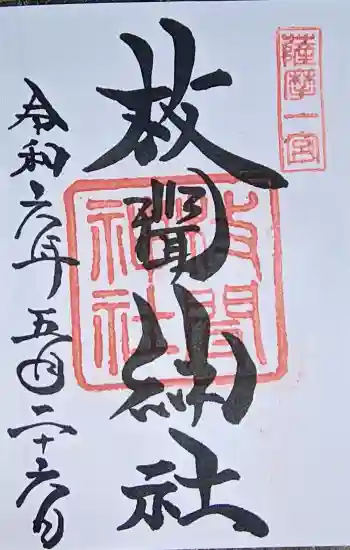 薩摩一宮
枚聞神社
枚聞
神社
令和六年五月二十六日